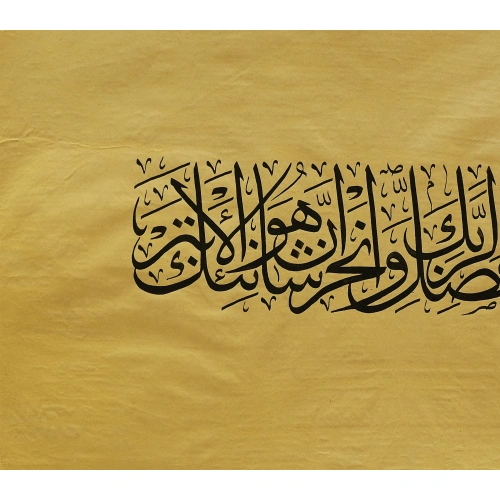 لربك وانحر إن شانئك هو الأبتر